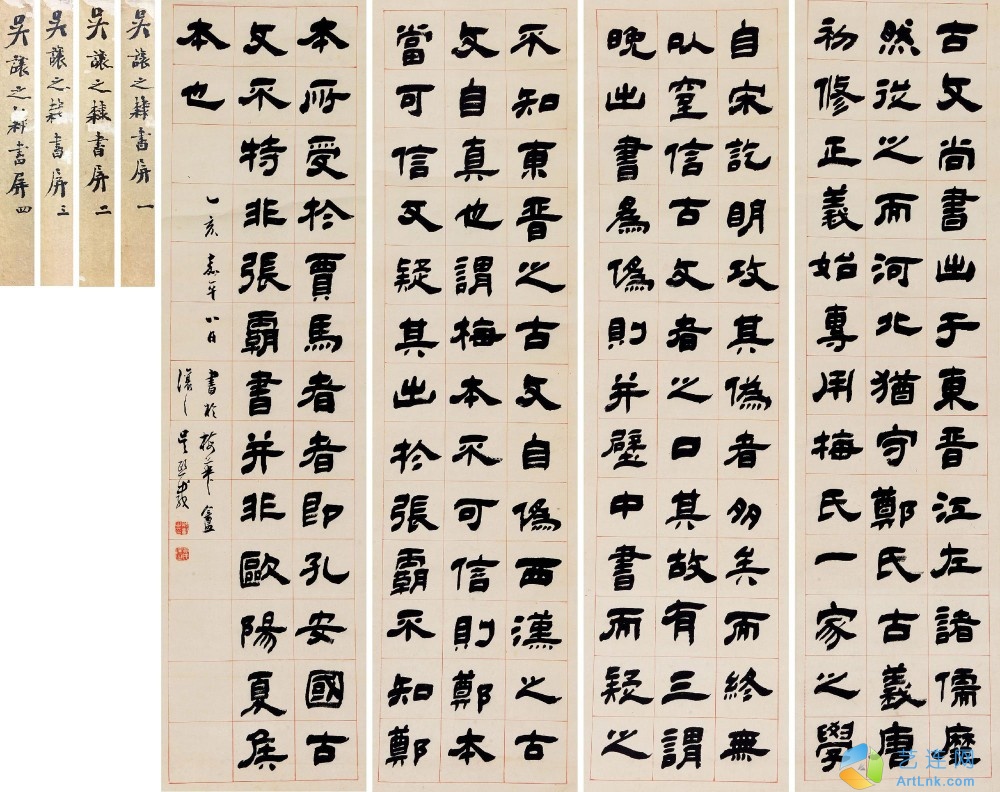 吳讓之隸書屏一
吳讓之隸書屏二
吳讓之隸書屏三
吳讓之隸書屏四
古文尚書出于東晉江左諸儒靡
然從之而河北猶守鄭氏古義唐
初修正義始專用梅氏一家之學
自宋訖明攻其僞者多矣而終無
以窒信古文者之口其故有三謂
晚出書爲僞則并壁中書而疑之
不知東晉之古文自僞西漢之古
文自真也謂梅本不可信則鄭本
當可信又疑其出於張霸不知鄭
本所受於賈馬者者即孔安國古
文不特非張霸書并非歐陽夏侯
本也
乙亥嘉平八日書於梅華盦
讓之吳熙載
艺连网
ArtLnk.com